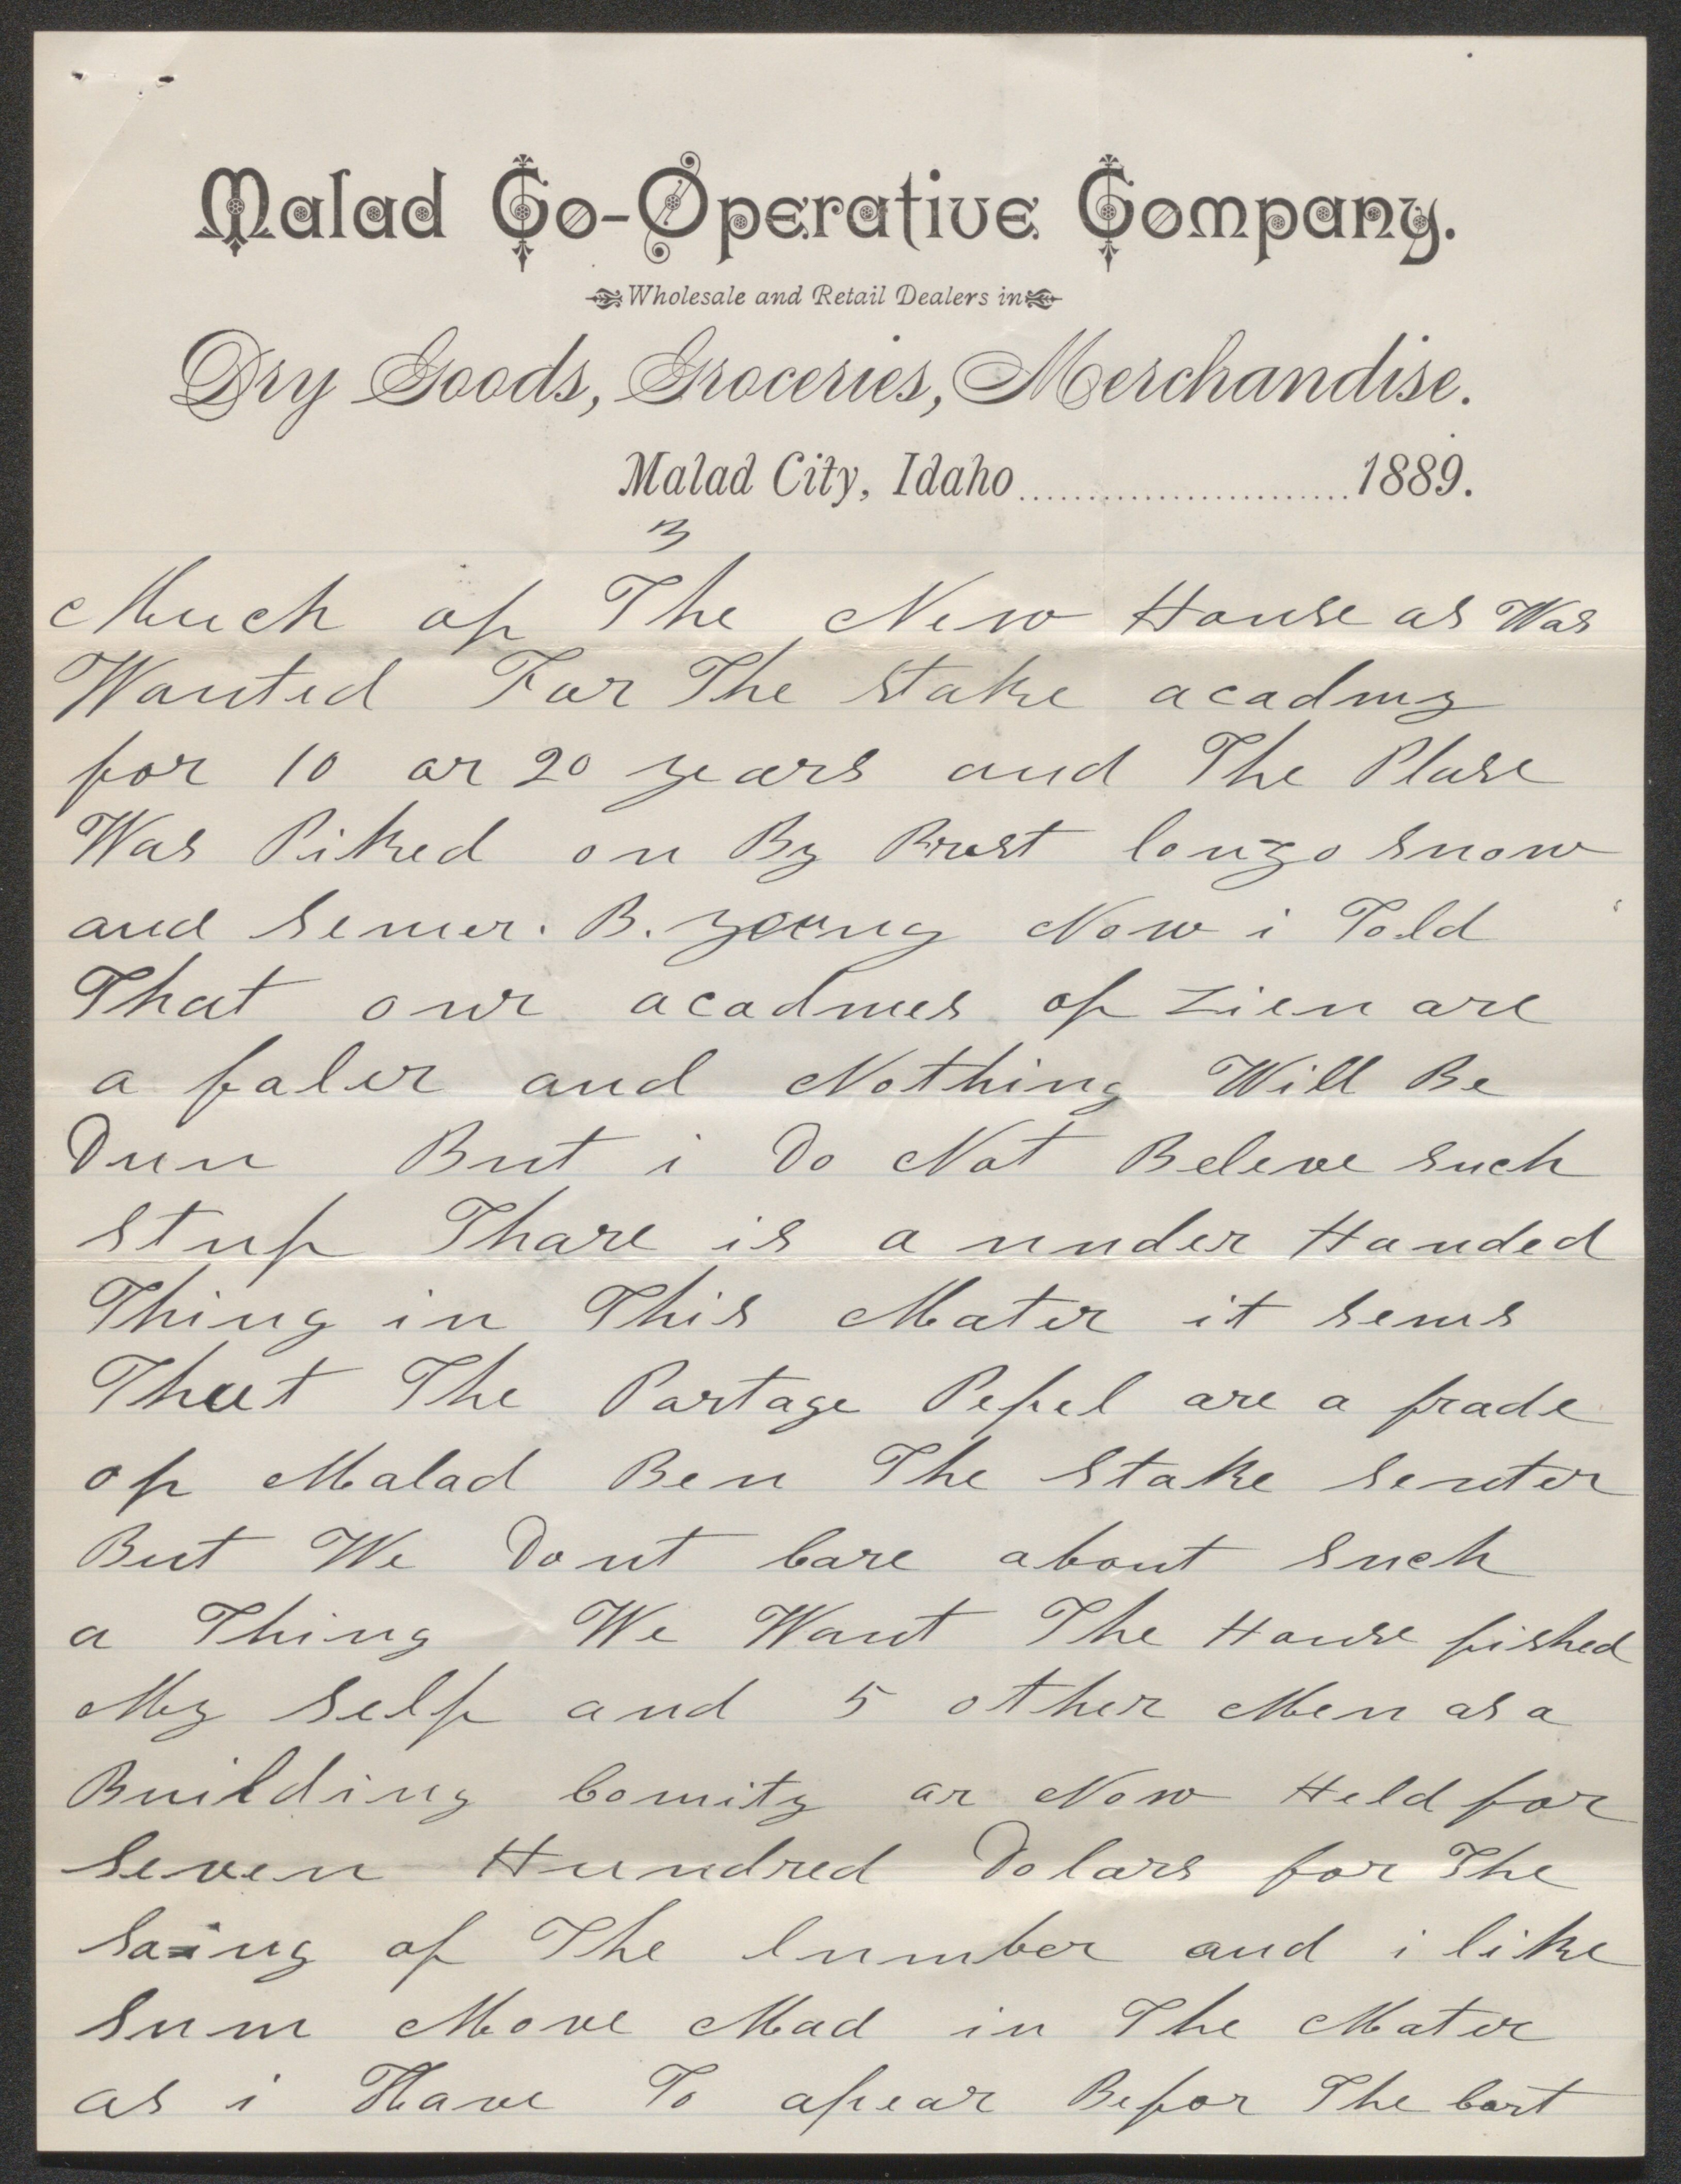 Malad Co-Operative Company.
Wholesale and Retail Dealers in
Dry Goods, Groceries, Merchandise.
Malad City, Idaho..........................1889.
3
Much of The New House as Was
Wanted For The Stake acadmy
for 10 or 20 years and The Plase
Was Piked on By Prest lonzo Snow
and Semer. B. young Now i Told
That owr acadmes of Zien are
a faler and Nothing Will Be
Dun But i Do Not Beleve such
Stuf Thare is a under Handed
Thing in This Mater it Sems
That The Portage Pepel are a frade
of Malad Ben The Stake Senter
But We Dont Care about Such
a Thing We Want The House fished
My Self and 5 other Men as a
Building Comity ar Now Held for
Seven Hundred Dolars for The
Saing of The lumber and i like
Sum Move Mad in The Mater
as i Have To apear Befor The Cort